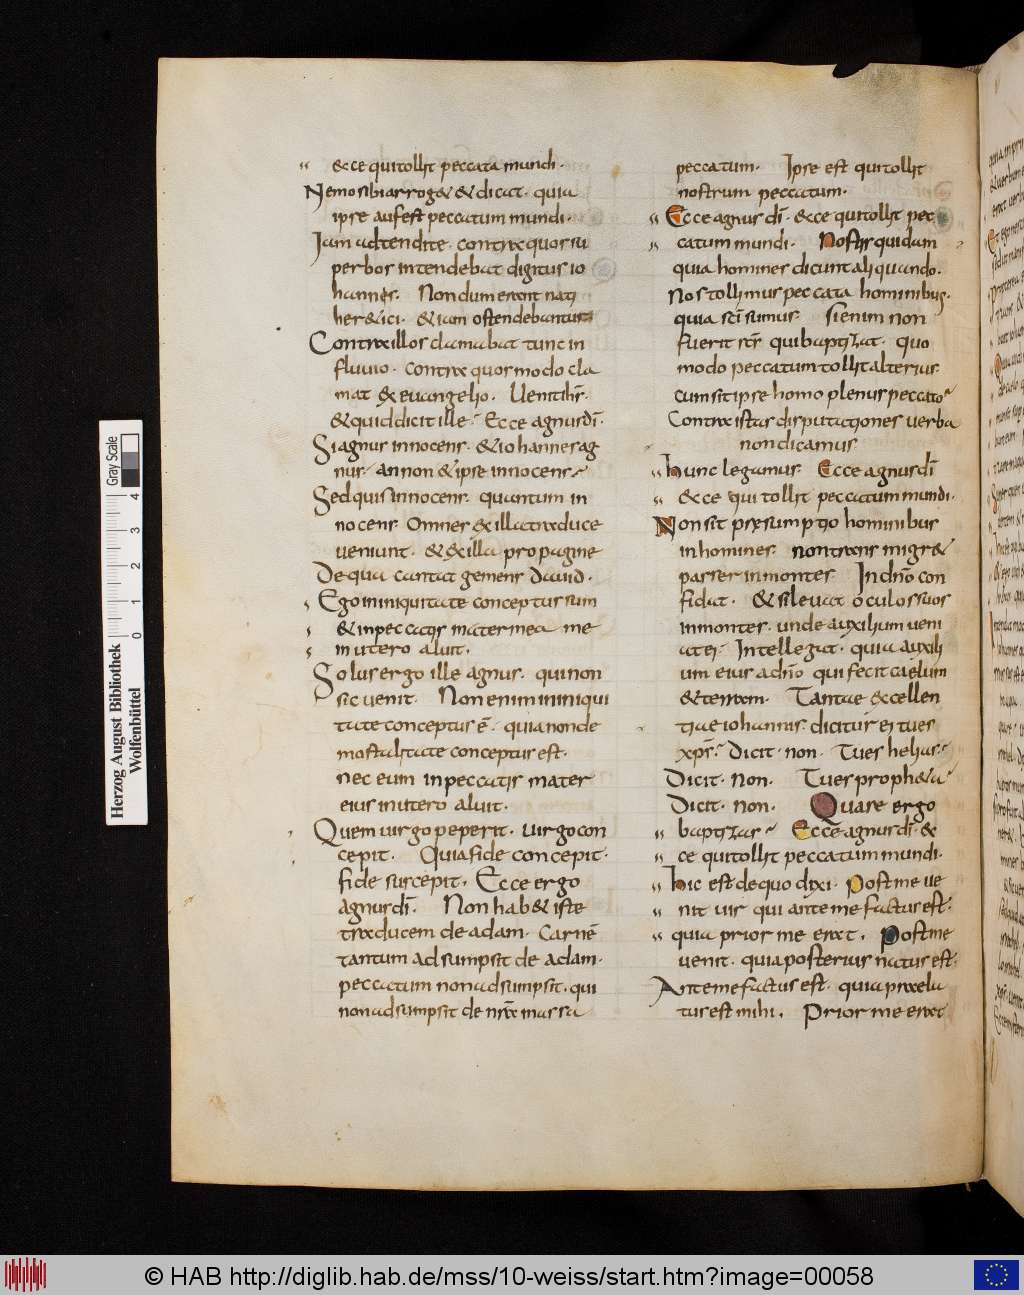 &cce qui tollit peccata mundi.
Nemo sibi arrog& & dicat. quia
ipse aufert peccatum mundi.
Iam adtendite. contra quos su
perbos intendebat digitus io
hannes. Nondum erant nati
her&ici. & iam ostendebantur
Contra illos clamabat tunc in
fluvio. contra quos modo cla
mat & euangelio. Uenit ihs.
& quid dicit ille. Ecce agnus di.
Si agnus innocens. & iohannes ag
nus. an non & ipse innocens
Sed quis innocens. quantum in
nocens. Omnes ex illa traduce
ueniunt. & ex illa propagine
De qua cantat gemens dauid.
Ego in iniquitate conceptus sum
& in peccatis mater mea me
in utero aluit.
Solus ergo ille agnus. qui non
sic uenit. Non enim in iniqui
tate conceptus ē. quia non de
mortalitate conceptus est.
nec eum in peccatis mater
eius in utero aluit.
Quem uirgo peperit. uirgo con
cepit. Quia fide concepit.
fide suscepit. Ecce ergo
agnus di. Non hab& iste
traducem de adam. Carnē
tantum adsumpsit de adam.
peccatum non adsumpsit. qui
non adsumpsit de nra massa
peccatum. Ipse est qui tollit
nostrum peccatum.
Ecce agnus di. &cce qui tollit pec
catum mundi. Nostis quidam
quia homines dicunt aliquando.
Nos tollimus peccata hominibus.
quia sci sumus. Si enim non
fuerit scs qui baptizat. quo
modo peccatum tollit alterius.
cum sit ipse homo plenus peccato
Contra istas disputationes uerba
non dicamus
hunc legamus. Ecce agnus di
&cce qui tollit peccatum mundi.
Non sit præsumptio hominibus
in homines. non trans migr&
passer in montes. In dno con
fidat. & si leuat oculos suos
in montes. unde auxilium ueni
at ei. Intellegat. quia auxili
um eius a dno qui fecit caelum
& terram. Tantae excellen
tiae iohannis. dicitur ei tu es
xps. Dicit. non. Tu es helias.
Dicit. Non. Tu es proph&a
Dicit. non. Quare ergo
baptizas. Ecce agnus di. &
ce qui tollit peccatum mundi.
hic est de quo dixi. post me ue
nit uir qui ante me factus est.
quia prior me erat. Post me
uenit. quia posterius natus est.
Ante me factus est. quia praela
tus est mihi. Prior me erat
Herzog August Bibliothek
Wolfenbüttel
Gray Scale
0 1 2 3 4
© HAB http://diglib.hab.de/mss/10-weiss/start.htm?image=00058